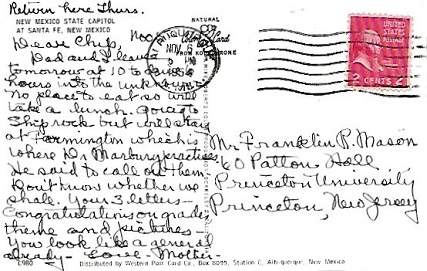 Return here Thurs.
NEW MEXICO STATE CAPITOL
AT SANTA FE, NEW MEXICO
Noon
Dear Chip,
Dad and I leave
tomorrow at 10 to drive
hours into the unknown
No place to eat so will
take a lunch. Going to
Ship rock but will stay
at Farmington which is
where Dr Marbury practices
He said to call on them
Don't know whether we
shall. Your 3 letters -
Congratulations on grades,
theme and pictures -
You look like a general
already - Love - Mother -
NATURAL
FROM KODACHROME
NOV 6
PM
2 CENTS 2
Mr. Franklin P. Mason
60 Patton Hall
Princeton University
Princeton, New Jersey
C980
Distributed by Western Post Card Co., Box 8095, Station C, Albuquerque, New Mexico